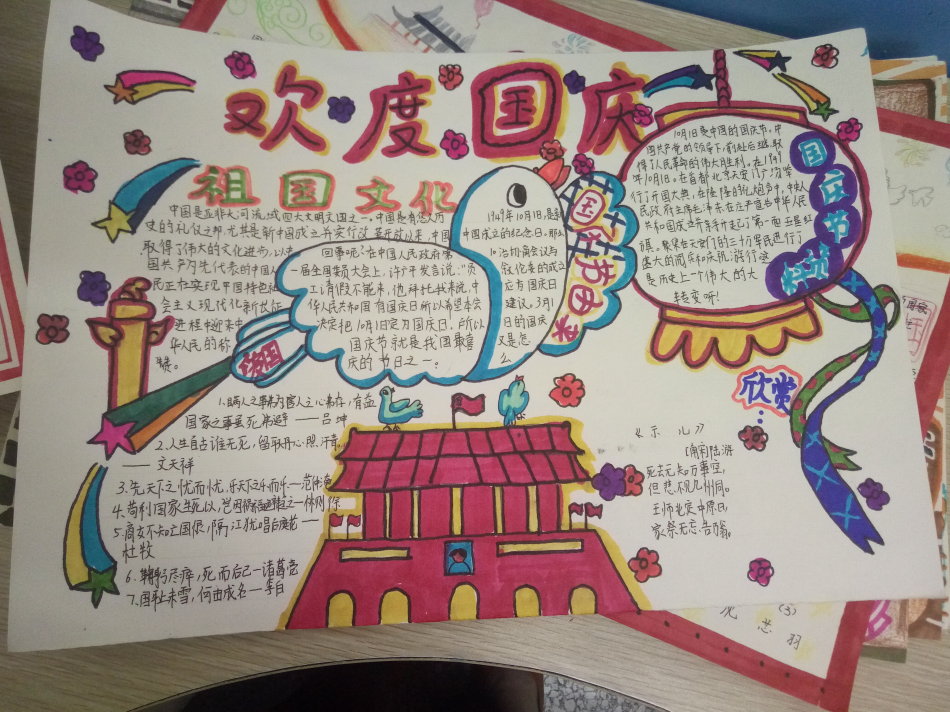 欢度国庆
祖国文化
中国是亚非大河流域四大文明古国之一,中国是有悠久历
史的礼仪之邦,尤其是新中国成立并实行改革开放以来,中国
取得了伟大的文化进步,以
国共产党先代表的中国人
民正在实现中国特色社
会主义现代化新长征
进程中迎来中
华人民的称
赞。
祖国
1949年10月1日,是新
中国成立的纪念日,那么
回事呢?在中国人民政府第
一届全国委员大会上,许广平发言说:"
员工请假不能来,他拜托我来说,中
华人民共和国有国庆日所以希望本会
决定把10月1日定为国庆日,所以
国庆节就是我国最喜
庆的节日之一。
治协商会议
日的国庆
又是怎
么
国庆节由来
10月1日是中国的国庆节,中
国共产党的领导下,前赴后继,取
得了人民革命的伟大胜利。在1949
年10月1日。在首都北京天安门广场举
行了开国大典,在隆隆的礼炮声中,中央人
民政府主席毛泽东在庄严宣告中华人民
共和国成立并亲手升起了第一面五星红
旗。聚集天安门的三十万军民进行了
盛大的阅兵和庆祝游行这
是历史上一个伟大的大
转变听!
国庆节
欣赏
1.瞒人之事弗为,害人之心弗存,有益
国家之事虽死弗避——吕坤
2.人生自古谁无死,留取丹心照汗青。
——文天祥
3.先天下之忧而忧,乐天下之乐而乐—范仲淹
4.苟利国家生死以,岂因祸福避趋之—林则徐
5.商女不知亡国恨,隔江犹唱后庭花—
杜牧
6.鞠躬尽瘁,死而后已—诸葛亮
7.国耻未雪,何由成名—李白
欣赏…
《示儿》
陆游
死去元知万事空,
但悲不见九州同。
王师北定中原日,
家祭无忘告乃翁。
(3)
芯羽